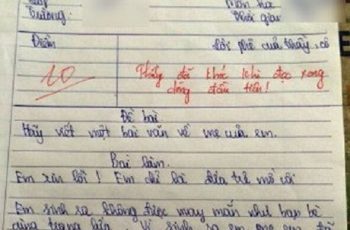 Lớp
Môn học
Trường:
Thời gian
Điểm
Lời phê của thầy, cô
10
Thầy đã khóc khi đọc xong
dòng đầu tiên!
Đề bài
Hãy viết một bài văn về mẹ của em.
Bài làm.
Em xin lỗi! Em chỉ là đứa trẻ mồ côi
Em sinh ra không được may mắn như bạn bè
cùng trang lứa. Vì sinh ra em mẹ em đã